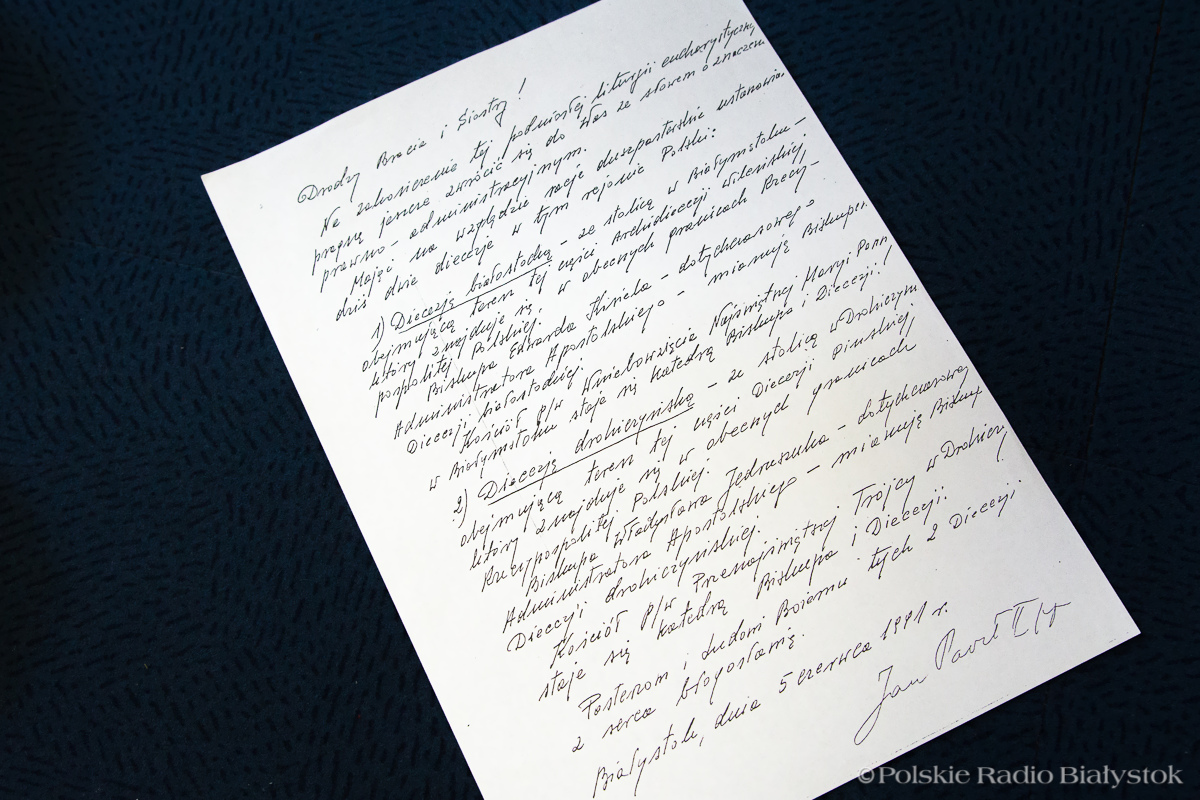 Drodzy Bracia i Siostry!
Na zakończenie tej podniosłej liturgii eucharystycznej
pragnę jeszcze zwrócić się do Was ze słowem o znaczeniu
prawno-administracyjnym.
Mając na względzie racje duszpasterskie ustanawiam
dziś dwie diecezje w tym rejonie Polski:
1) Diecezję białostocką – ze stolicą w Białymstoku –
obejmującą teren tej części Archidiecezji wileńskiej,
który znajduje się w obecnych granicach Rzeczy-
pospolitej Polskiej.
Biskupa Edwarda Kisiela – dotychczasowego
Administratora Apostolskiego – mianuję Biskupem
Diecezji białostockiej.
Kościół p/w Wniebowzięcia Najświętszej Maryi Panny
w Białymstoku staje się Katedrą Biskupa i Diecezji.
2) Diecezję drohiczyńską – ze stolicą w Drohiczynie
obejmującą teren tej części Diecezji pińskiej,
który znajduje się w obecnych granicach
Rzeczypospolitej Polskiej.
Biskupa Władysława Jędruszuka – dotychczasowego
Administratora Apostolskiego – mianuję Biskupem
Diecezji drohiczyńskiej.
Kościół p/w Przenajświętszej Trójcy w Drohiczynie
staje się Katedrą Biskupa i Diecezji.
Pasterzom i Ludowi Bożemu tych 2 Diecezji
z serca błogosławię.
Białystok, dnia 5 czerwca 1991 r.
Jan Paweł II
©Polskie Radio Białystok